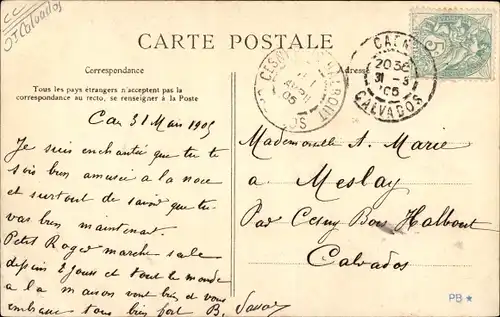 CC
Jt Calvados
CARTE POSTALE
Correspondance
Adresse
Tous les pays étrangers n'acceptent pas la
correspondance au recto, se renseigner à la Poste
CESNY BOIS HALBOUT
05
CAEN
20 35
31 - 3
05
CALVADOS
5
Caen 31 Mars 1905
Je suis enchantée que tu te
sois bien amusée à la noce
et surtout de savoir que tu
vas bien maintenant.
Petit Roger marche seul
depuis 2 jours et tout le monde
à la maison vont bien et vous
embrasse tous bien fort B.
Mademoiselle A. Marie
a Meslay
Par Cesny Bois Halbout
Calvados
PB